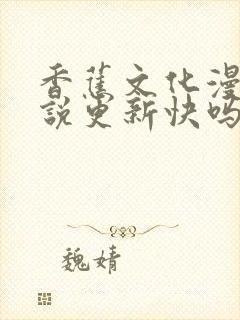 香蕉文化漫
説更新快吗
魏婧